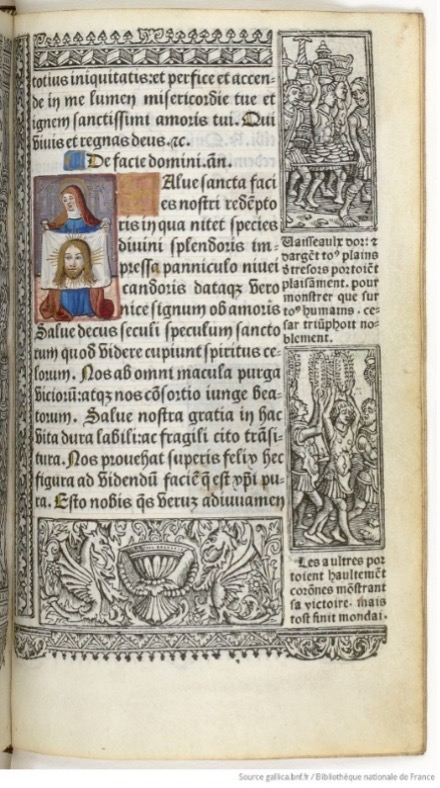 totius iniquitatis:et perfice et accen-
de in me lumen misericordie tue et
ignem sanctissimi amoris tui. Qui
viuis et regnas deus. ⁊c.
De facie domini. añ.
Alue sancta faci
es nostri redẽpto
ris in qua nitet species
diuini splendoris im-
pressa panniculo niuei
candoris dataqꝫ vero
nice signum ob amoris
Salue decus seculi speculum sancto
rum quod videre cupiunt spiritus ce-
lorum. Nos ab omni macula purga
viciorũ:atqꝫ nos cõsortio iunge bea-
torum. Salue nostra gratia in hac
vita dura labili:ac fragili cito trãsi-
tura. Nos prouehat superis felix hec
figura ad videndũ faciẽ q̃ est xp̃i pu-
ra. Esto nobis q̃s veruz adiuuamen
Vaisseaulx dor: ⁊
dargẽt toꝰ plains
d̾ tresors portoiẽt
plaisãment. pour
monstrer que sur
toꝰ humains. ce-
sar triũphoit no-
blement.
Les aultres por
toient haultemẽt
corõnes mõstrant
sa victoire. mais
tost finit mondai.
Source gallica.bnf.fr / Bibliothèque nationale de France